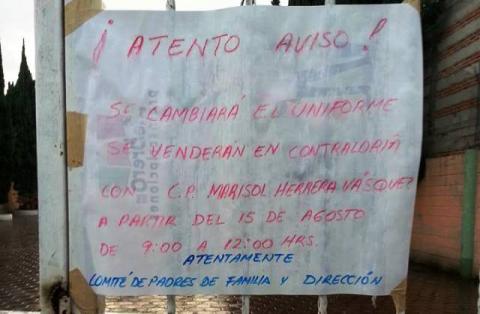 ¡ATENTO AVISO!
SE CAMBIARÁ EL UNIFORME
SE VENDERÁN EN CONTRALORIA
CON C.P. MARISOL HERRERA VÁSQUEZ
A PARTIR DEL 15 DE AGOSTO
DE 9:00 A 12:00 HRS.
ATENTAMENTE
COMITÉ DE PADRES DE FAMILIA Y DIRECCIÓN